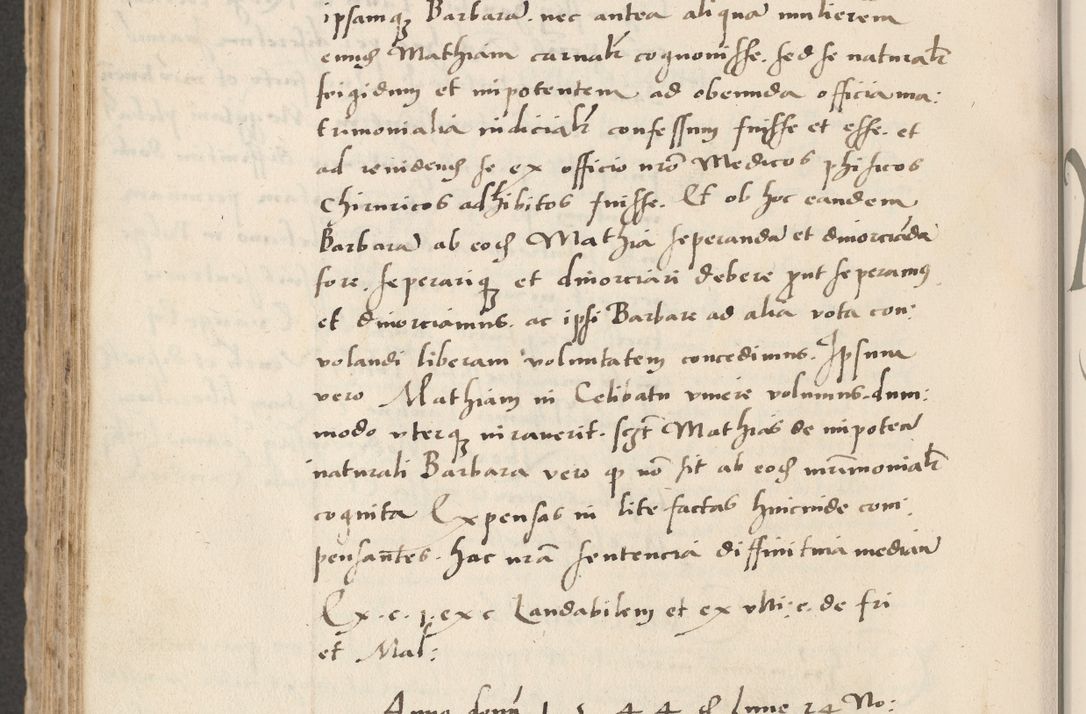 ipsamq₃ Barbarā. nec antea aliquā mulierem
eūq₃ Mathiam carnalr̃ cognouisse. sed se naturalr̃
frigidum et impotentem ad obeunda officia ma:
trimonialia iudicialr̃ confessum fuisse et esse. et
ad uidend se ex officio nr̃o Medicos phisicos
Chiruricos adhibitos fuisse. Et ob hoc eandem
Barbarā ab eod Mathia seperandā et diuorciādā
fore. seperariq₃ et diuorciari debere ꝓut seperamus
et diuorciamus. ac ipsi Barbare ad alia vota con:
volandi liberam voluntatem concedimus. Ipsum
vero Mathiam in Celibatu viuere volumus. dum:
modo vterq₃ iurauerit. sczt Mathias de impotēā
naturali Barbara vero ꝙ nō sit ab eod mr̃imonialr̃
cognita Expensas in lite factas hincinde com:
pensantes. hac nr̃a sentencia diffinitiua mediāñ
Ex. c. 1. ex c Laudabilem et ex vlti: c. de fri
et Mal:
Anno domj 1544 d lune 24 No: